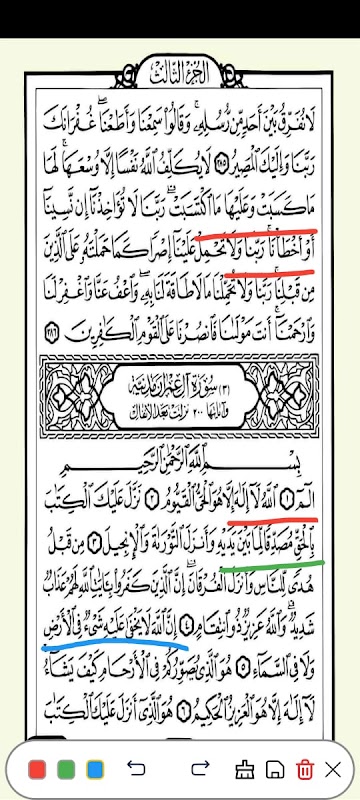 الجزء الثالث
لَا نُفَرِّقُ بَيْنَ أَحَدٍ مِّن رُّسُلِهِۦ ۚ وَقَالُوا۟ سَمِعْنَا وَأَطَعْنَا ۖ غُفْرَانَكَ
رَبَّنَا وَإِلَيْكَ ٱلْمَصِيرُ ٢٨٥ لَا يُكَلِّفُ ٱللَّهُ نَفْسًا إِلَّا وُسْعَهَا ۚ لَهَا
مَا كَسَبَتْ وَعَلَيْهَا مَا ٱكْتَسَبَتْ ۗ رَبَّنَا لَا تُؤَاخِذْنَآ إِن نَّسِينَآ
أَوْ أَخْطَأْنَا ۚ رَبَّنَا وَلَا تَحْمِلْ عَلَيْنَآ إِصْرًا كَمَا حَمَلْتَهُۥ عَلَى ٱلَّذِينَ
مِن قَبْلِنَا ۚ رَبَّنَا وَلَا تُحَمِّلْنَا مَا لَا طَاقَةَ لَنَا بِهِۦ ۖ وَٱعْفُ عَنَّا وَٱغْفِرْ لَنَا
وَٱرْحَمْنَآ ۚ أَنتَ مَوْلَىٰنَا فَٱنصُرْنَا عَلَى ٱلْقَوْمِ ٱلْكَٰفِرِينَ ٢٨٦
(٣) سورة آل عمران مدنية
وآياتها ٢٠٠ نزلت بعد الأنفال
بِسْمِ ٱللَّهِ ٱلرَّحْمَٰنِ ٱلرَّحِيمِ
الٓمٓ ١ ٱللَّهُ لَآ إِلَٰهَ إِلَّا هُوَ ٱلْحَىُّ ٱلْقَيُّومُ ٢ نَزَّلَ عَلَيْكَ ٱلْكِتَٰبَ
بِٱلْحَقِّ مُصَدِّقًا لِّمَا بَيْنَ يَدَيْهِ وَأَنزَلَ ٱلتَّوْرَىٰةَ وَٱلْإِنجِيلَ ٣ مِن قَبْلُ
هُدًى لِّلنَّاسِ وَأَنزَلَ ٱلْفُرْقَانَ ۗ إِنَّ ٱلَّذِينَ كَفَرُوا۟ بِـَٔايَٰتِ ٱللَّهِ لَهُمْ عَذَابٌ
شَدِيدٌ ۗ وَٱللَّهُ عَزِيزٌ ذُو ٱنتِقَامٍ ٤ إِنَّ ٱللَّهَ لَا يَخْفَىٰ عَلَيْهِ شَىْءٌ فِى ٱلْأَرْضِ
وَلَا فِى ٱلسَّمَآءِ ٥ هُوَ ٱلَّذِى يُصَوِّرُكُمْ فِى ٱلْأَرْحَامِ كَيْفَ يَشَآءُ ۚ
لَآ إِلَٰهَ إِلَّا هُوَ ٱلْعَزِيزُ ٱلْحَكِيمُ ٦ هُوَ ٱلَّذِىٓ أَنزَلَ عَلَيْكَ ٱلْكِتَٰبَ